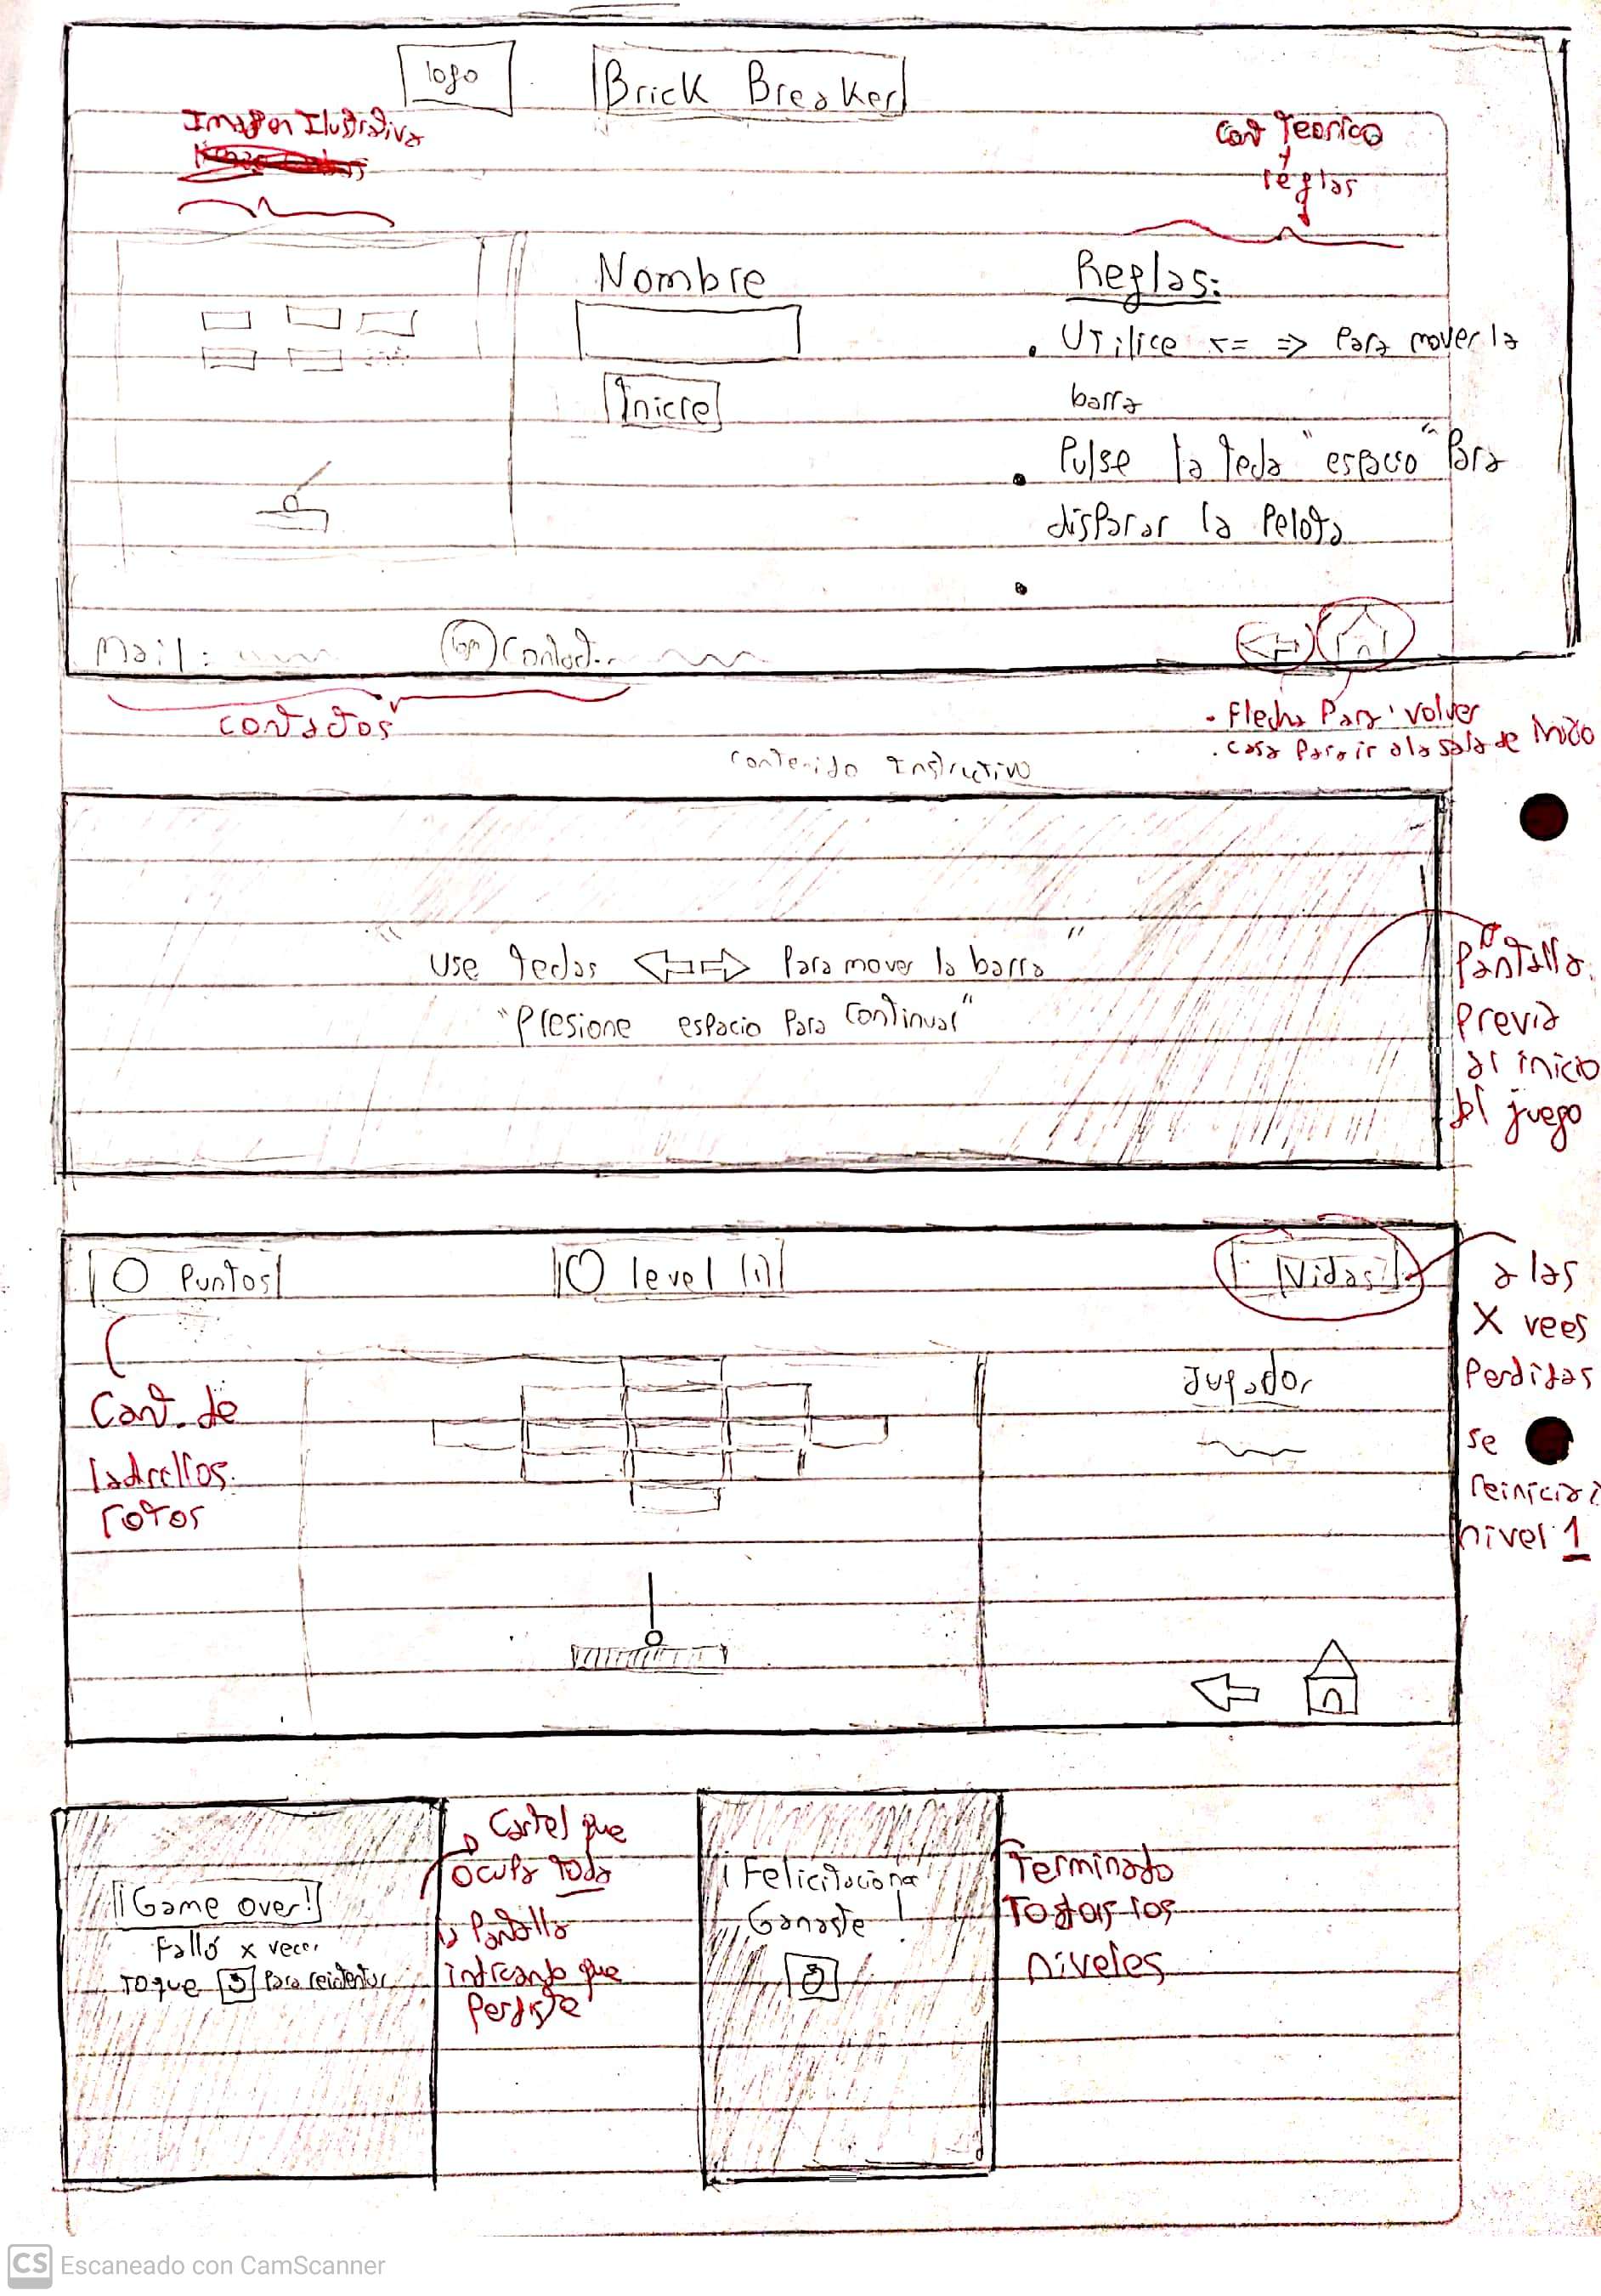 logo
Brick Breaker
Imagen Ilustrativa
Cont Teorico
y
reglas
Nombre
Reglas:
• Utilice <= => para mover la
barra
Inicie
• Pulse la tecla "espacio" Para
disparar la Pelota
•
Mail:
logo Contact.
contactos
- Flecha Para volver
. casa para ir a la sala de Inicio
contenido Instructivo
"use teclas ⇦⇨ Para mover la barra"
"Presione espacio Para continuar"
Pantalla
previa
al inicio
del juego
O Puntos
O level (1)
Vidas
a las
X vees
Perdidas
se
reiniciar
nivel 1
Cant. de
ladrillos
rotos
Jugador
¡Game over!
Falló x veces
Toque para reintentar
Cartel que
ocupa toda
la Pantalla
indicando que
Perdiste
¡Felicitaciones
Ganaste!
Terminado
Todos los
niveles
CS Escaneado con CamScanner